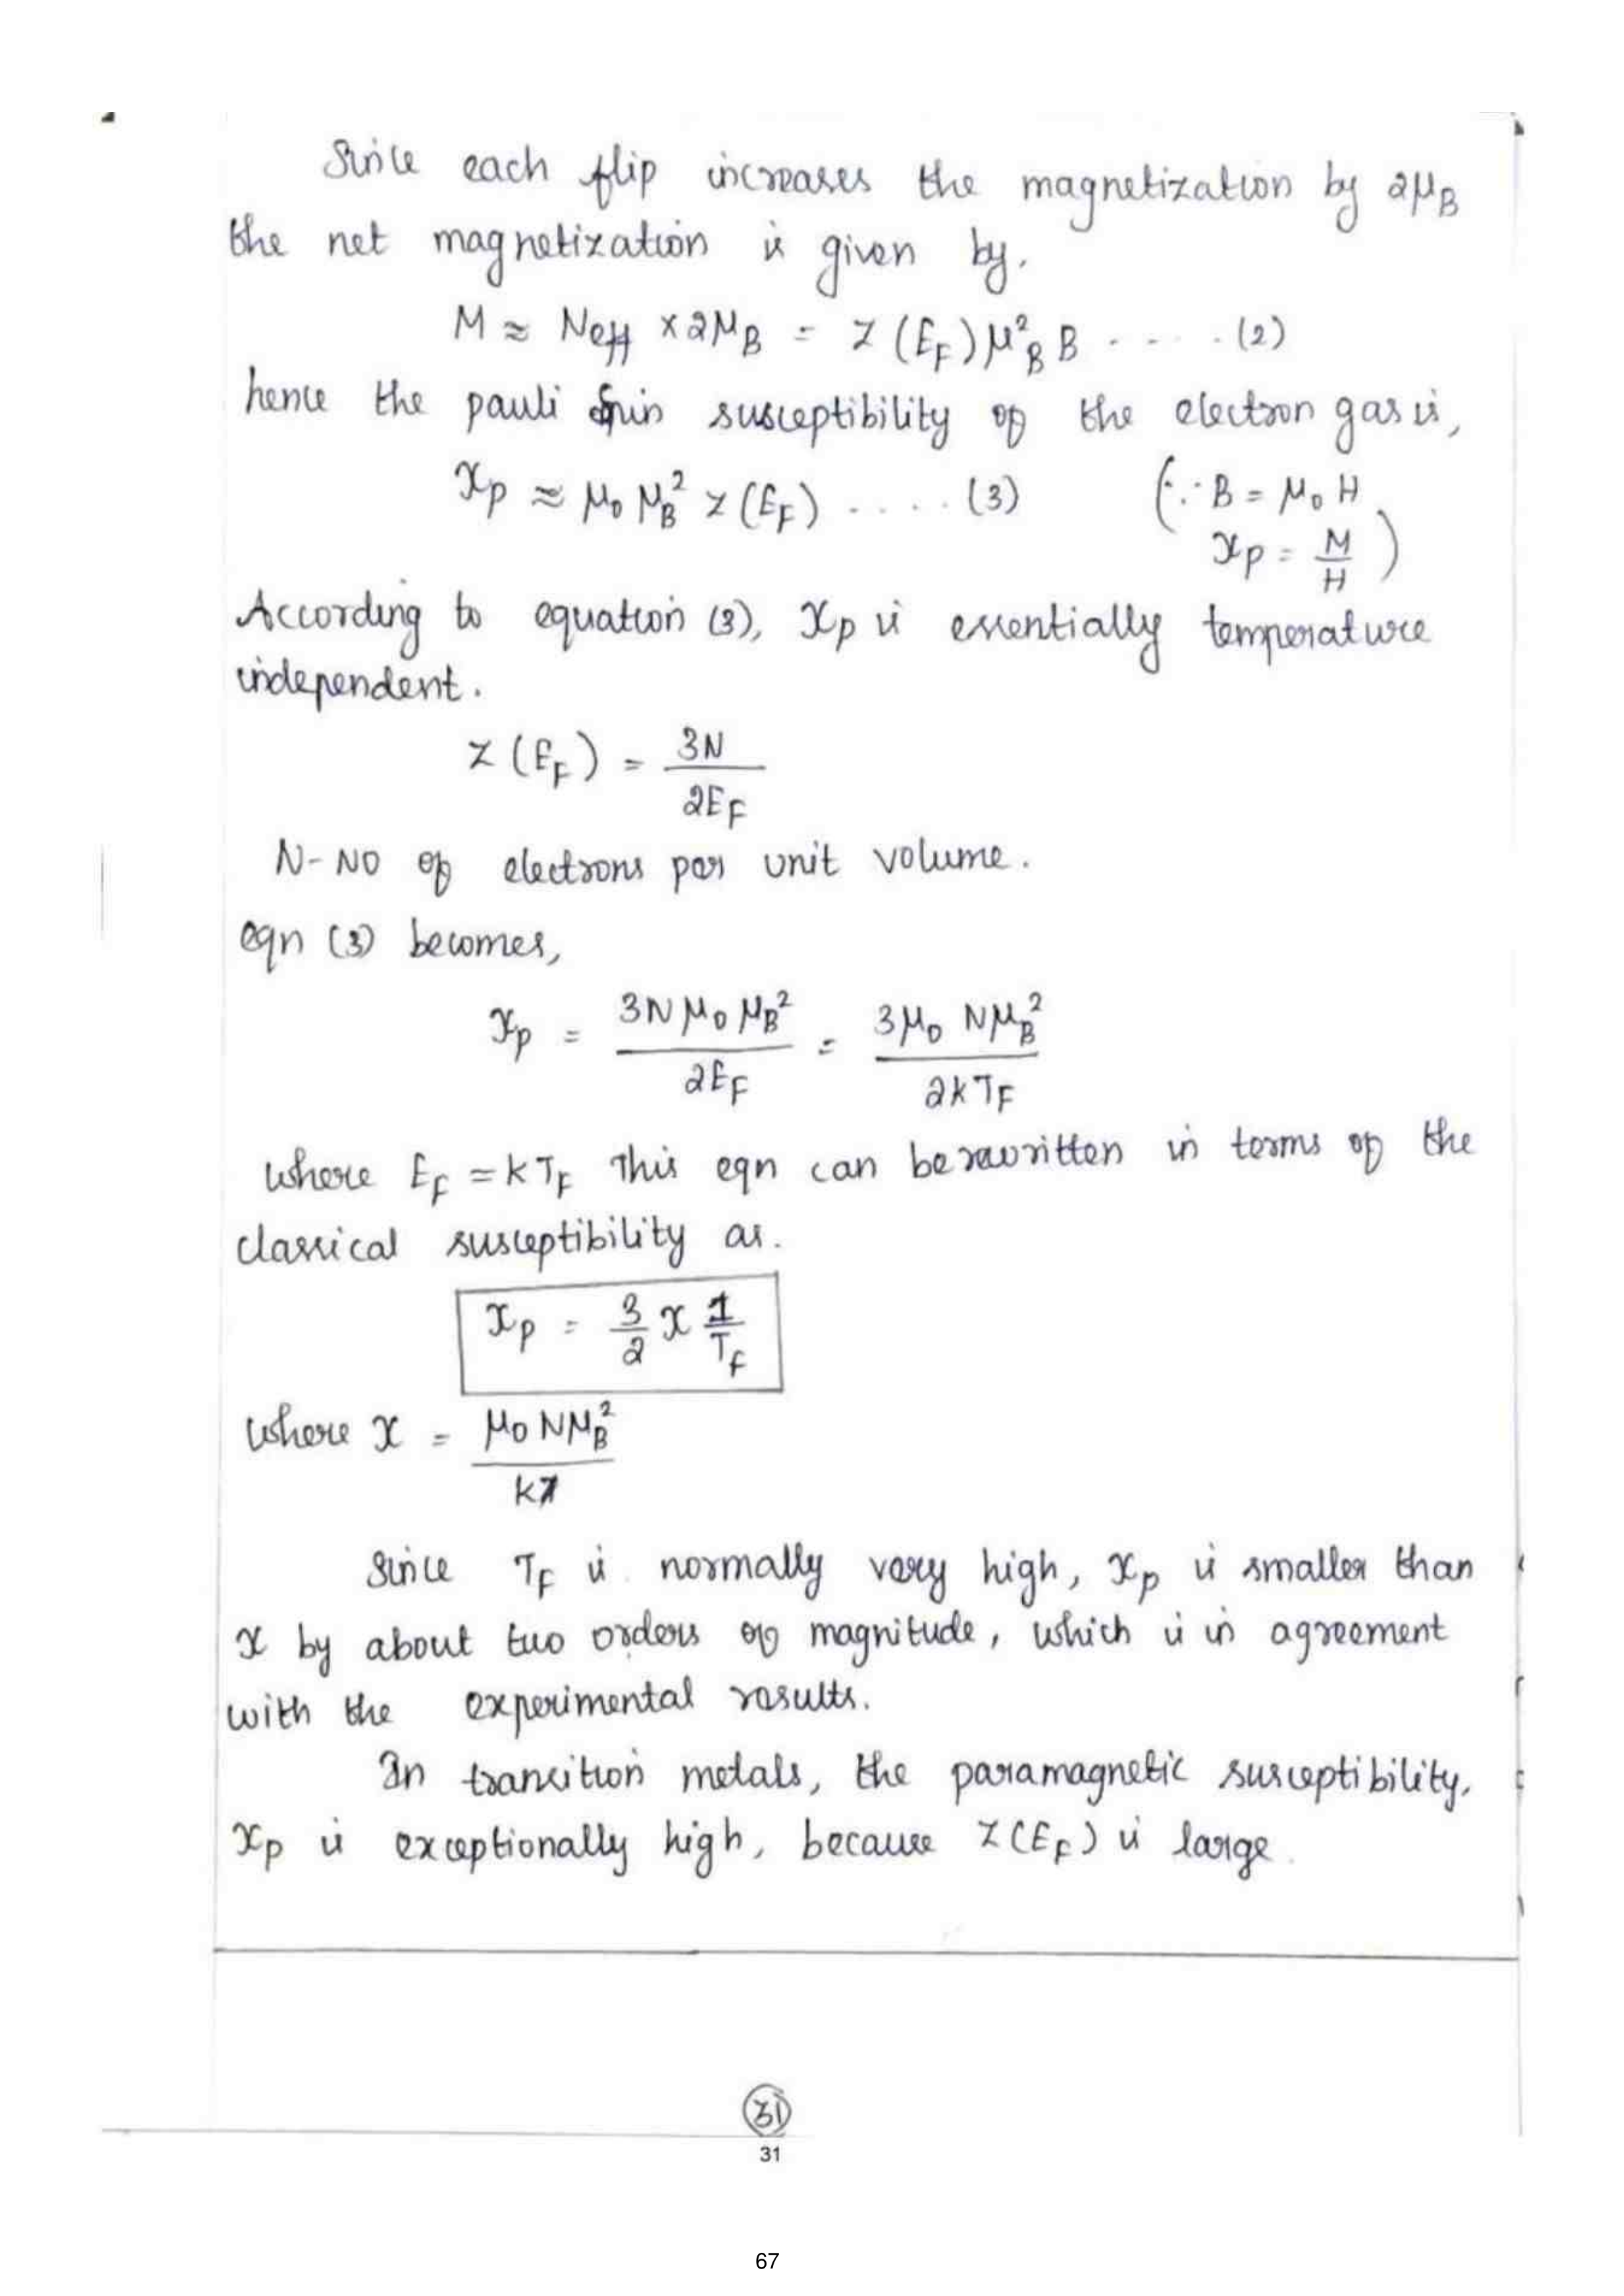 Since each flip increases the magnetization by 2μB
the net magnetization is given by,
M ≈ Neff × 2μB = Z(EF)μ²B B - - - - - (2)
hence the pauli spin susceptibility of the electron gas is,
χP ≈ μ0 μB² Z(EF) ..... (3) (∵ B = μ0 H
χP = M/H )
According to equation (3), χP is essentially temperature
independent.
Z(EF) = 3N / 2EF
N- NO of electrons per unit volume.
eqn (3) becomes,
χP = 3Nμ0 μB² / 2EF = 3μ0 NμB² / 2kTF
where EF = kTF This eqn can be rewritten in terms of the
classical susceptibility as.
χP = 3/2 χ 1/TF
where χ = μ0 NμB² / k
Since TF is normally very high, χP is smaller than
χ by about two orders of magnitude, which is in agreement
with the experimental results.
In transition metals, the paramagnetic susceptibility,
χP is exceptionally high, because Z(EF) is large.
31
31
67